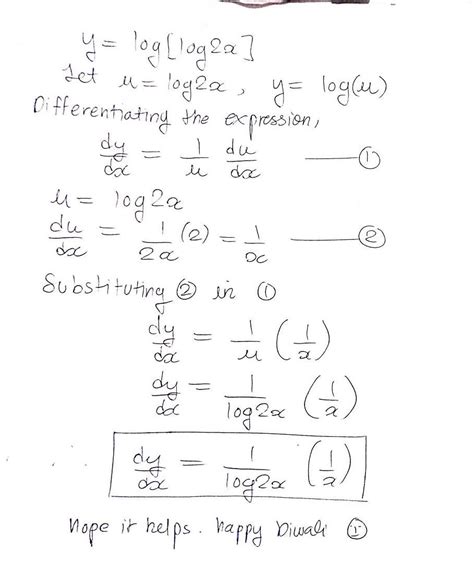 y = log[log2x]
Let u = log2x, y = log(u)
Differentiating the expression,
dy/dx = 1/u du/dx —— ①
u = log2x
du/dx = 1/2x (2) = 1/x —— ②
Substituting ② in ①
dy/dx = 1/u (1/x)
dy/dx = 1/log2x (1/x)
dy/dx = 1/log2x (1/x)
Hope it helps. Happy Diwali